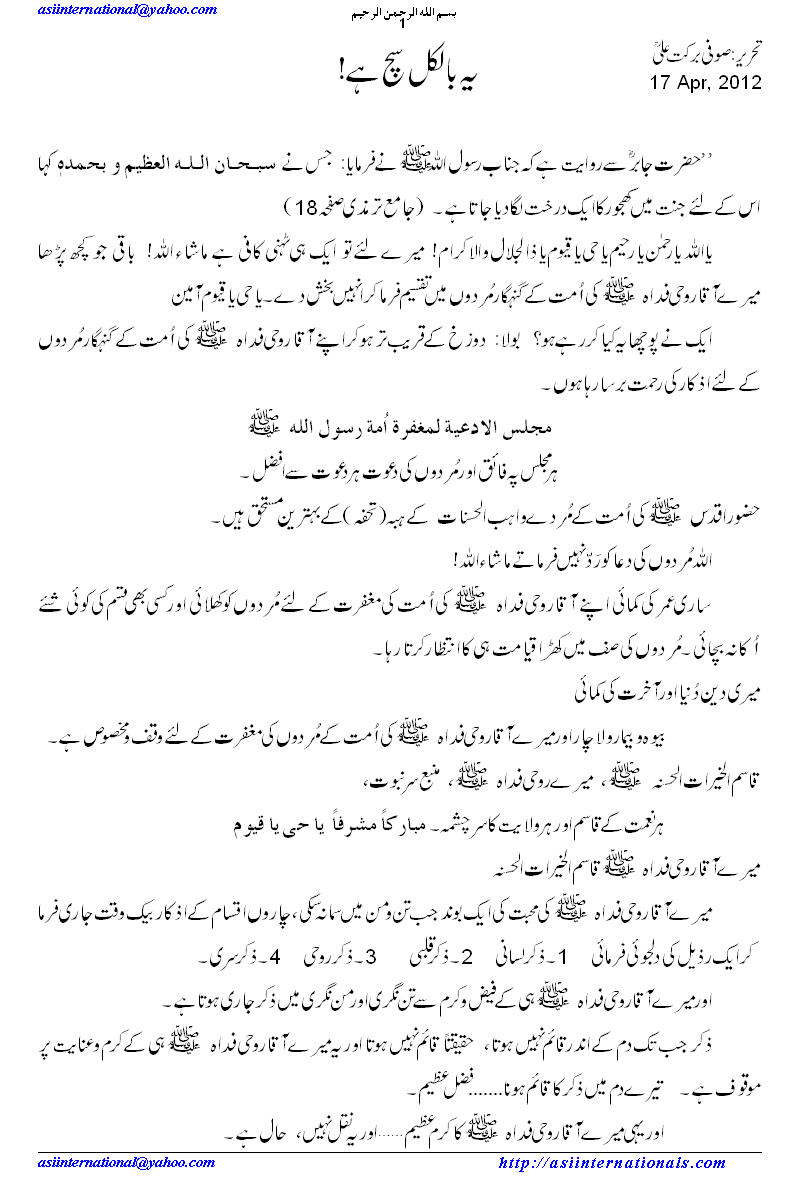 asiinternational@yahoo.com
بسم الله الرحمن الرحيم
1
تحریر: صوفی برکت علیؒ
17 Apr, 2012
یہ بالکل سچ ہے!
’’حضرت جابرؓ سے روایت ہے کہ جناب رسول اللہ ﷺ نے فرمایا: جس نے سبحان اللہ العظیم و بحمدہٖ کہا
اس کے لئے جنت میں کھجور کا ایک درخت لگا دیا جاتا ہے۔ (جامع ترمذی صفحہ 18)
یا اللہ یا رحمٰن یا رحیم یا حی یا قیوم یا ذالجلال والاکرام! میرے لئے تو ایک ہی ٹہنی کافی ہے ماشاء اللہ! باقی جو کچھ پڑھا
میرے آقا روحی فداہ ﷺ کی اُمت کے گنہگار مُردوں میں تقسیم فرما کر انہیں بخش دے۔ یا حی یا قیوم آمین
ایک نے پوچھا یہ کیا کر رہے ہو؟ بولا: دوزخ کے قریب تر ہو کر اپنے آقا روحی فداہ ﷺ کی اُمت کے گنہگار مُردوں
کے لئے اذکار کی رحمت برسا رہا ہوں۔
مجلس الادعية لمغفرة أمة رسول الله ﷺ
ہر مجلس پہ فائق اور مُردوں کی دعوت ہر دعوت سے افضل۔
حضور اقدس ﷺ کی اُمت کے مُردے واہب الحسنات کے ہبہ (تحفہ) کے بہترین مستحق ہیں۔
اللہ مُردوں کی دعا کو رَدّ نہیں فرماتے ماشاء اللہ!
ساری عمر کی کمائی اپنے آقا روحی فداہ ﷺ کی اُمت کی مغفرت کے لئے مُردوں کو کھلائی اور کسی بھی قسم کی کوئی شئے
اُکا نہ بچائی۔ مُردوں کی صف میں کھڑا قیامت ہی کا انتظار کرتا رہا۔
میری دین دُنیا اور آخرت کی کمائی
بیوہ و بیمار و لاچار اور میرے آقا روحی فداہ ﷺ کی اُمت کے مُردوں کی مغفرت کے لئے وقف و مخصوص ہے۔
قاسم الخیرات الحسنہ ﷺ، میرے روحی فداہ ﷺ، منبع سر نبوت،
ہر نعمت کے قاسم اور ہر ولایت کا سرچشمہ۔ مبارکاً مشرفاً یا حی یا قیوم
میرے آقا روحی فداہ ﷺ قاسم الخیرات الحسنہ
میرے آقا روحی فداہ ﷺ کی محبت کی ایک بوند جب تن و من میں سما نہ سکی، چاروں اقسام کے اذکار بیک وقت جاری فرما
کر ایک رذیل کی دلجوئی فرمائی 1۔ ذکر لسانی 2۔ ذکر قلبی 3۔ ذکر روحی 4۔ ذکر سری۔
اور میرے آقا روحی فداہ ﷺ ہی کے فیض و کرم سے تن نگری اور من نگری میں ذکر جاری ہوتا ہے۔
ذکر جب تک دم کے اندر قائم نہیں ہوتا، حقیقتاً قائم نہیں ہوتا اور یہ میرے آقا روحی فداہ ﷺ ہی کے کرم و عنایت پر
موقوف ہے۔ تیرے دم میں ذکر کا قائم ہونا....... فضل عظیم۔
اور یہی میرے آقا روحی فداہ ﷺ کا کرم عظیم...... اور یہ نقل نہیں، حال ہے۔
asiinternational@yahoo.com
http://asiinternationals.com